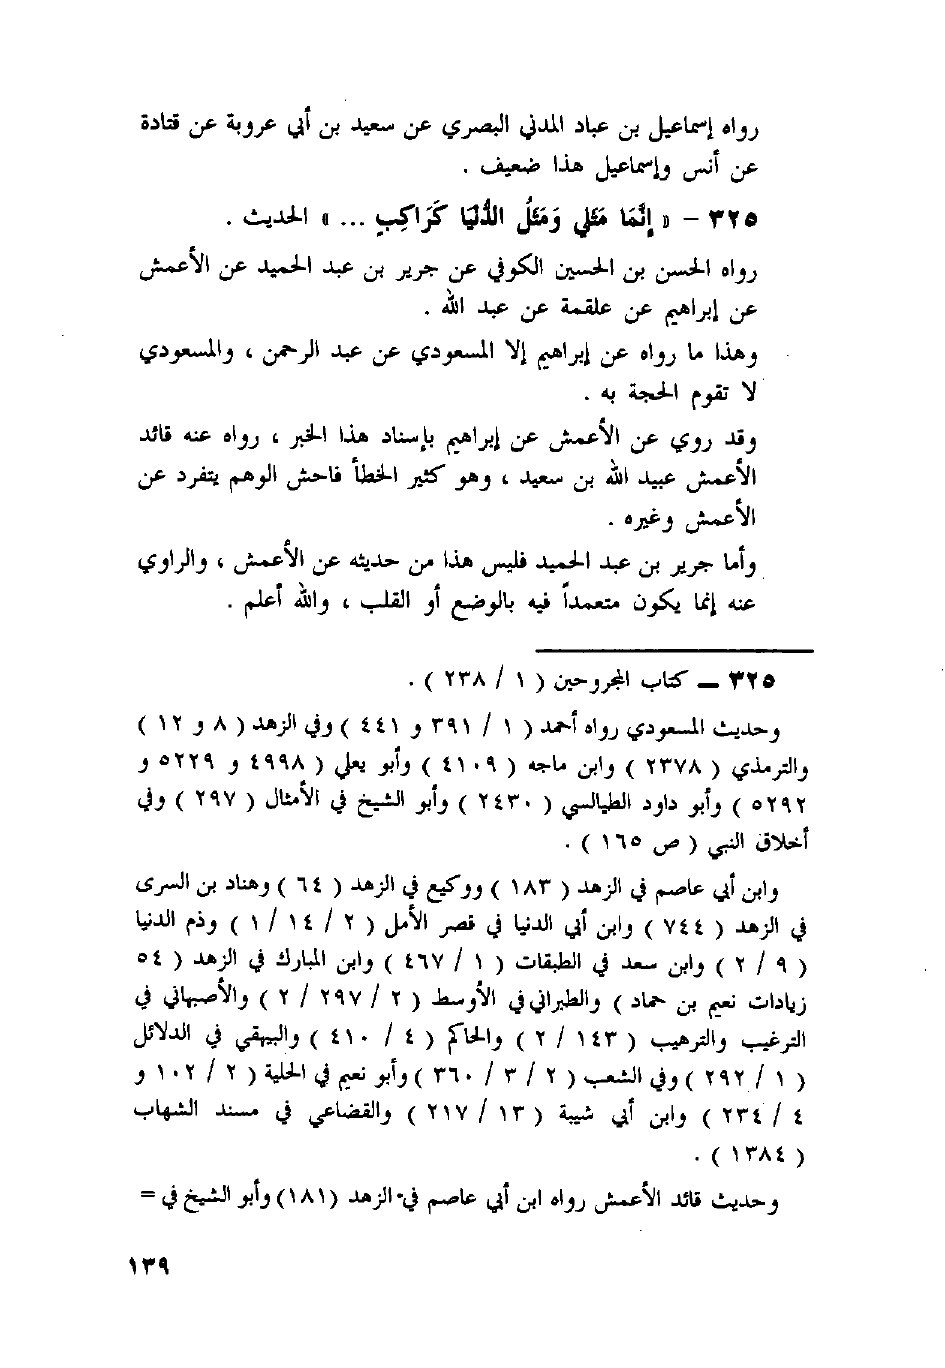 رواه إسماعيل بن عباد المدني البصري عن سعيد بن أبي عروبة عن قتادة
عن أنس وإسماعيل هذا ضعيف .
٣٢٥ – « إِنَّمَا مَثَلِي وَمَثَلُ الدُّنْيَا كَرَاكِبٍ ... » الحديث .
رواه الحسن بن الحسين الكوفي عن جرير بن عبد الحميد عن الأعمش
عن إبراهيم عن علقمة عن عبد الله .
وهذا ما رواه عن إبراهيم إلا المسعودي عن عبد الرحمن ، والمسعودي
لا تقوم الحجة به .
وقد روي عن الأعمش عن إبراهيم بإسناد هذا الخبر ، رواه عنه قائد
الأعمش عبيد الله بن سعيد ، وهو كثير الخطأ فاحش الوهم يتفرد عن
الأعمش وغيره .
وأما جرير بن عبد الحميد فليس هذا من حديثه عن الأعمش ، والراوي
عنه إنما يكون متعمداً فيه بالوضع أو القلب ، والله أعلم .
٣٢٥ – كتاب المجروحين ( ١ / ٢٣٨ ) .
وحديث المسعودي رواه أحمد ( ١ / ٣٩١ و ٤٤١ ) وفي الزهد ( ٨ و ١٢ )
والترمذي ( ٢٣٧٨ ) وابن ماجه ( ٤١٠٩ ) وأبو يعلي ( ٤٩٩٨ و ٥٢٢٩ و
٥٢٩٢ ) وأبو داود الطيالسي ( ٢٤٣٠ ) وأبو الشيخ في الأمثال ( ٢٩٧ ) وفي
أخلاق النبي ( ص ١٦٥ ) .
وابن أبي عاصم في الزهد ( ١٨٣ ) ووكيع في الزهد ( ٦٤ ) وهناد بن السرى
في الزهد ( ٧٤٤ ) وابن أبي الدنيا في قصر الأمل ( ٢ / ١٤ / ١ ) وذم الدنيا
( ٩ / ٢ ) وابن سعد في الطبقات ( ١ / ٤٦٧ ) وابن المبارك في الزهد ( ٥٤
زيادات نعيم بن حماد ) والطبراني في الأوسط ( ٢ / ٢٩٧ / ٢ ) والأصبهاني في
الترغيب والترهيب ( ١٤٣ / ٢ ) والحاكم ( ٤ / ٤١٠ ) والبيهقي في الدلائل
( ١ / ٢٩٢ ) وفي الشعب ( ٢ / ٣ / ٣٦٠ ) وأبو نعيم في الحلية ( ٢ / ١٠٢ و
٤ / ٢٣٤ ) وابن أبي شيبة ( ١٣ / ٢١٧ ) والقضاعي في مسند الشهاب
( ١٣٨٤ ) .
وحديث قائد الأعمش رواه ابن أبي عاصم في الزهد (١٨١) وأبو الشيخ في =
١٣٩